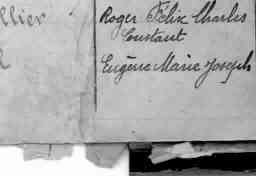 llier
Roger Félix Charles
Constant
Eugène Marie Joseph